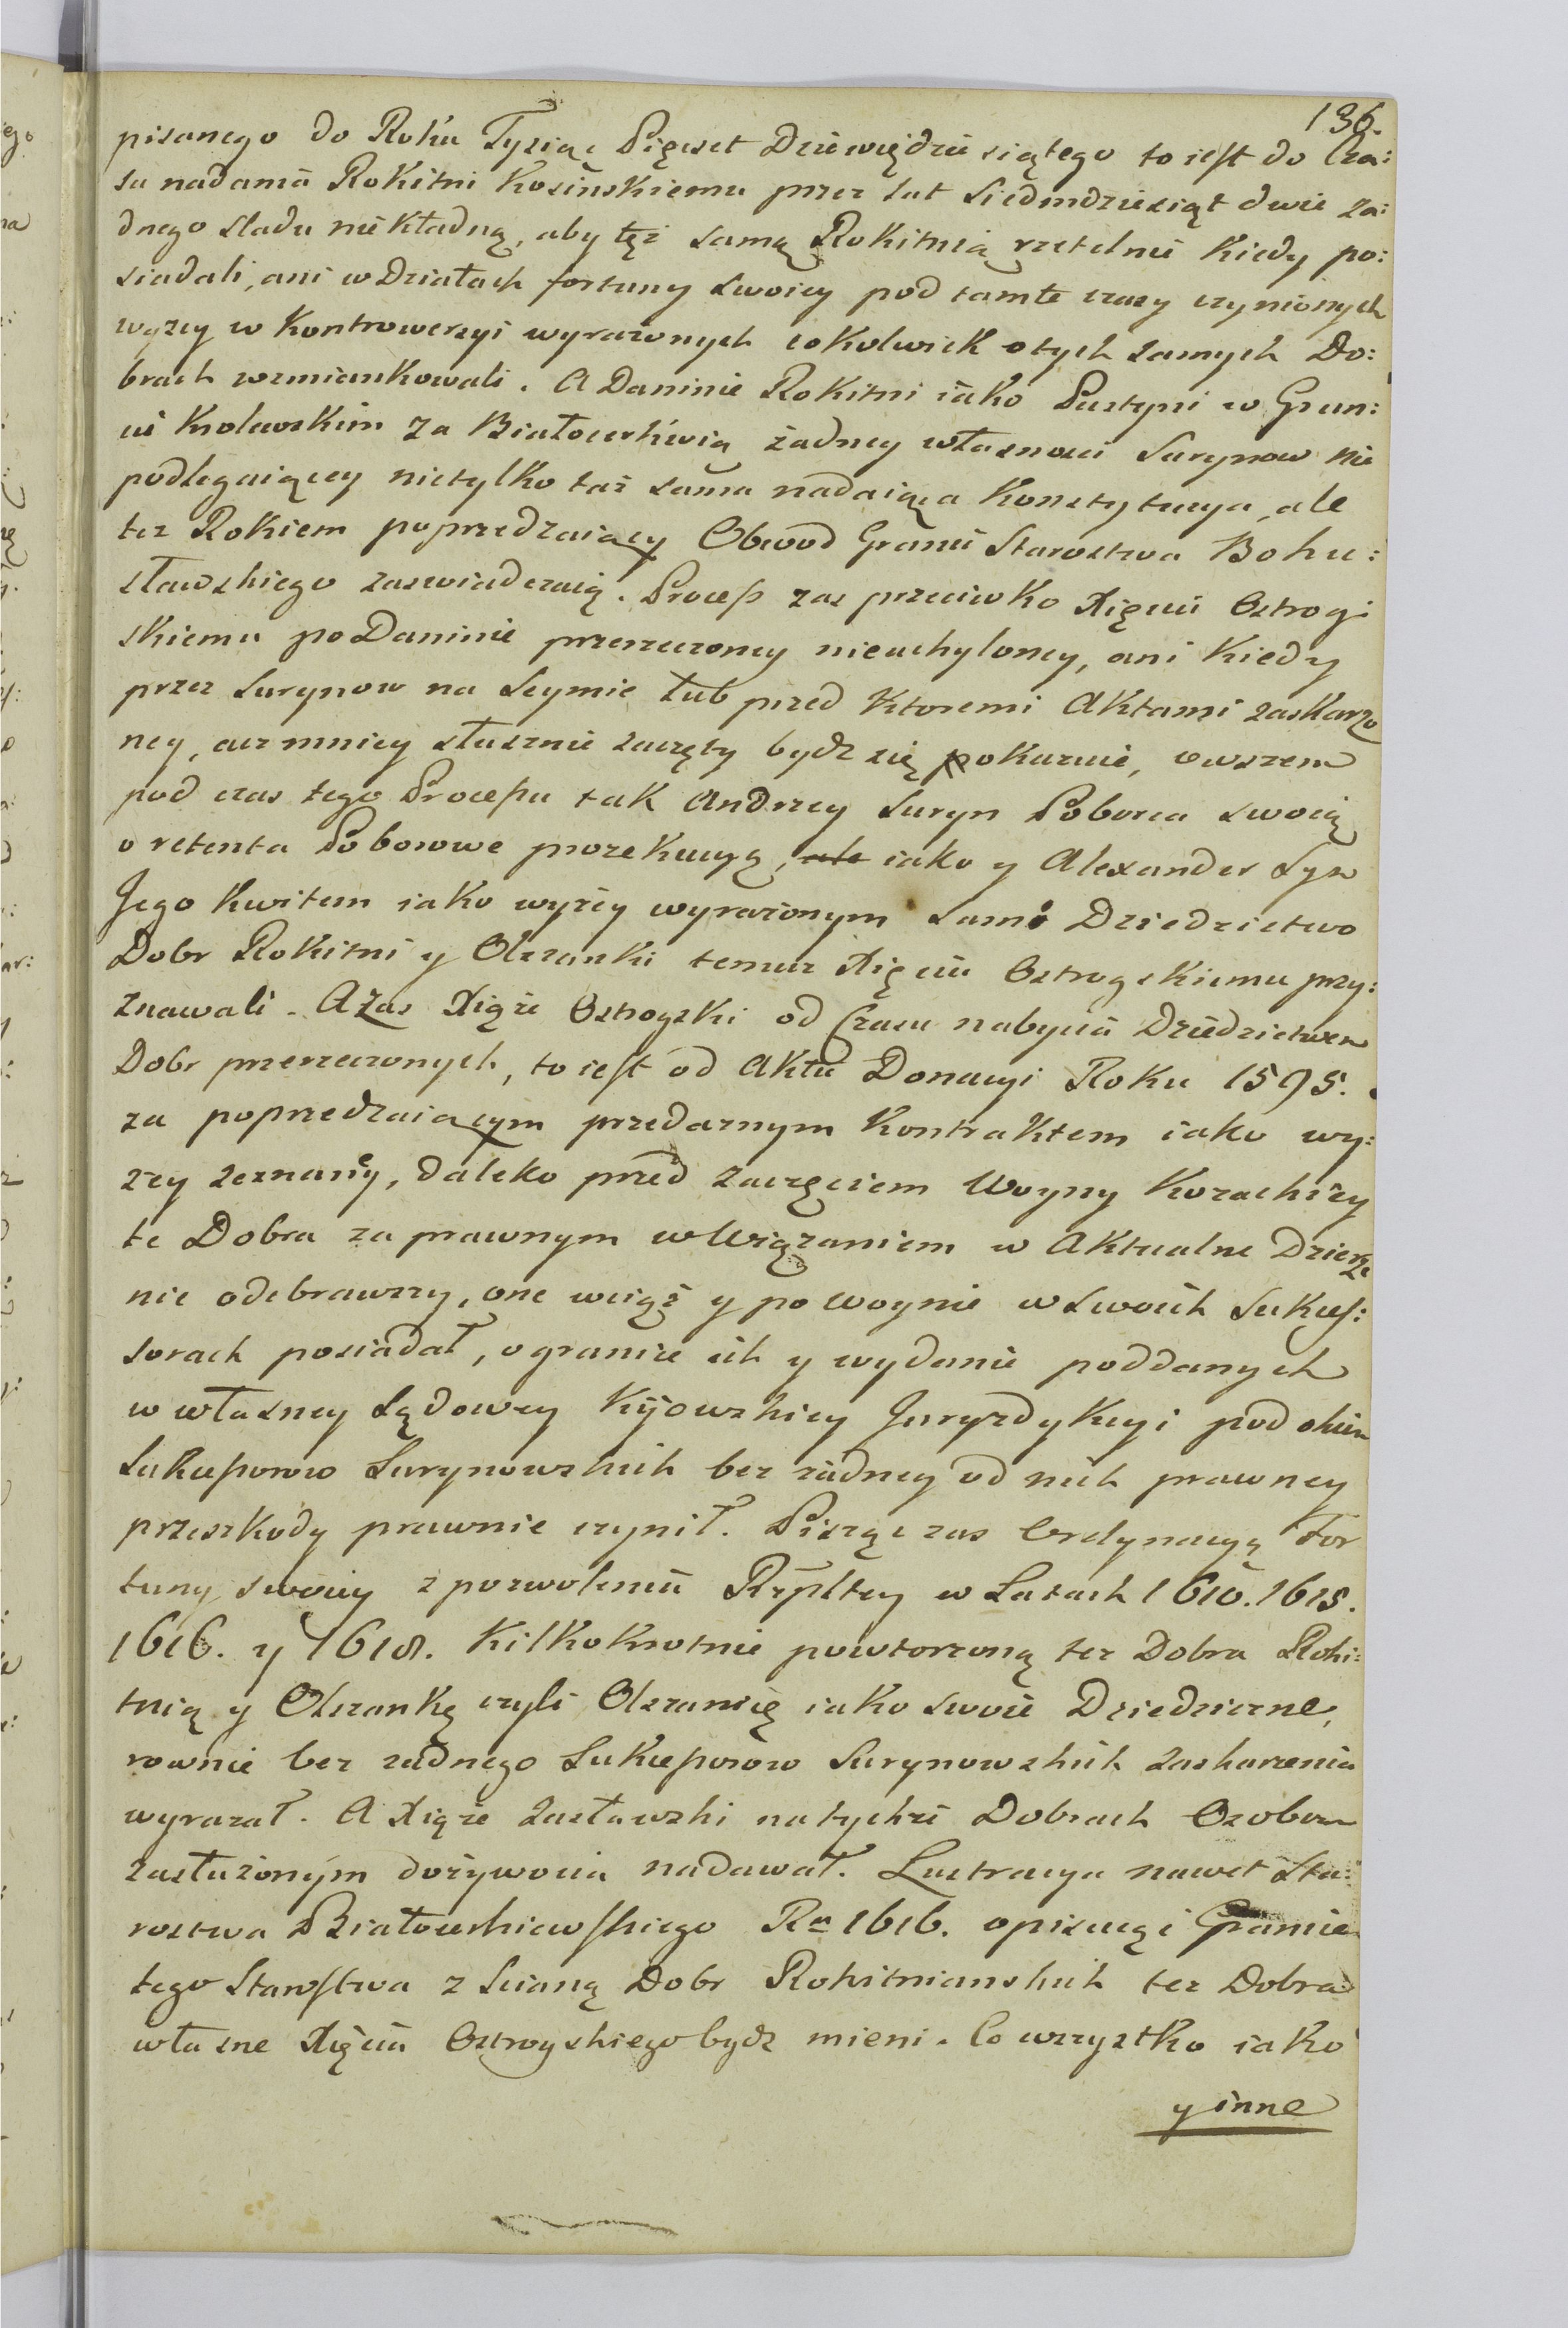 136.
pisanego do Roku Tysiąc Pięcset Dziewiędziesiątego to iest do Cza:
su nadania Rokitni Kosinskiemu przez lat siedmdziesiąt dwie ża:
dnego sladu nie kładną, aby tęż samą Rokitnią rzetelnie kiedy po:
siadali, ani w Działach fortuny swoiey pod tamte czasy czynionych
wyzey w Kontrowersyi wyrażonych cokolwiek o tych samych Do:
brach wzmiankowali. A Daninie Rokitni iako Pustyni w Grun:
cie Krolewskim za Białocerkwią żadney własnosci Surynow nie
podlegaiącey nietylko taż sama nadaiąca Konstytucya, ale
tez Rokiem poprzedzaiący Obwod Granic Starostwa Bohu:
sławskiego zaswiadczaią. Process zas przeciwko Xięciu Ostrog:
skiemu po Daninie przerzeczoney nieuchyloney, ani kiedy
przez Surynow na Seymie lub przed ktoremi Aktami zaskarżo
ney, czez mniey słusznie zaczęty bydz się pokazuie, owszem
pod czas tego Processu tak Andrzey Suryn Poborca swoią
o retenta Poborowe prozekucyą, ale iako y Alexander Syn
Jego kwitem iako wyżey wyrażonym samo Dziedzictwo
Dobr Rokitni y Olszanki temuz Xięciu Ostrogskiemu przy:
znawali. A zas Xiąże Ostrogski od Czasu nabycia Dziedzictwem
Dobr przerzeczonych, to iest od Aktu Donacyi Roku 1595.
za poprzedzaiącym przedaznym Kontraktem iako wy:
zey zeznaney, daleko przed zaczęciem Woyny Kozackiey
te Dobra za prawnym w Wiązaniem w Aktualne Dzierże
nie odebrawszy, one wciąż y po woynie w swoich Sukces:
sorach posiadał, o granice ich y wydanie poddanych
w własney Sądowey Kijowskiey Juryzdykcyi pod okiem
Sukcessorow Surynowskich bez żadney od nich prawney
przeszkody prawnie czynił. Pisząc zas Ordynacyą For
tuny swoiey z pozwolenia Rzpltey w Latach 1610. 1615.
1616. y 1618. kilkokrotnie powtorzoną tez Dobra Roki:
tnią y Olszankę czyli Olszanicę iako swoie Dziedziczne,
rownie bez żadnego Sukcessorow Surynowskich zaskarzenia
wyrazał. A Xiąże Zasławski na tychże Dobrach Osobom
zasłużonym dożywocia nadawał. Lustracya nawet Sta:
rostwa Białocerkiewskiego Ru 1616. opisuiąc Granice
tego Starostwa z scianą Dobr Rokitnianskich tez Dobra
własne Xięcia Ostrogskiego bydz mieni. Co wszystko iako
y inne